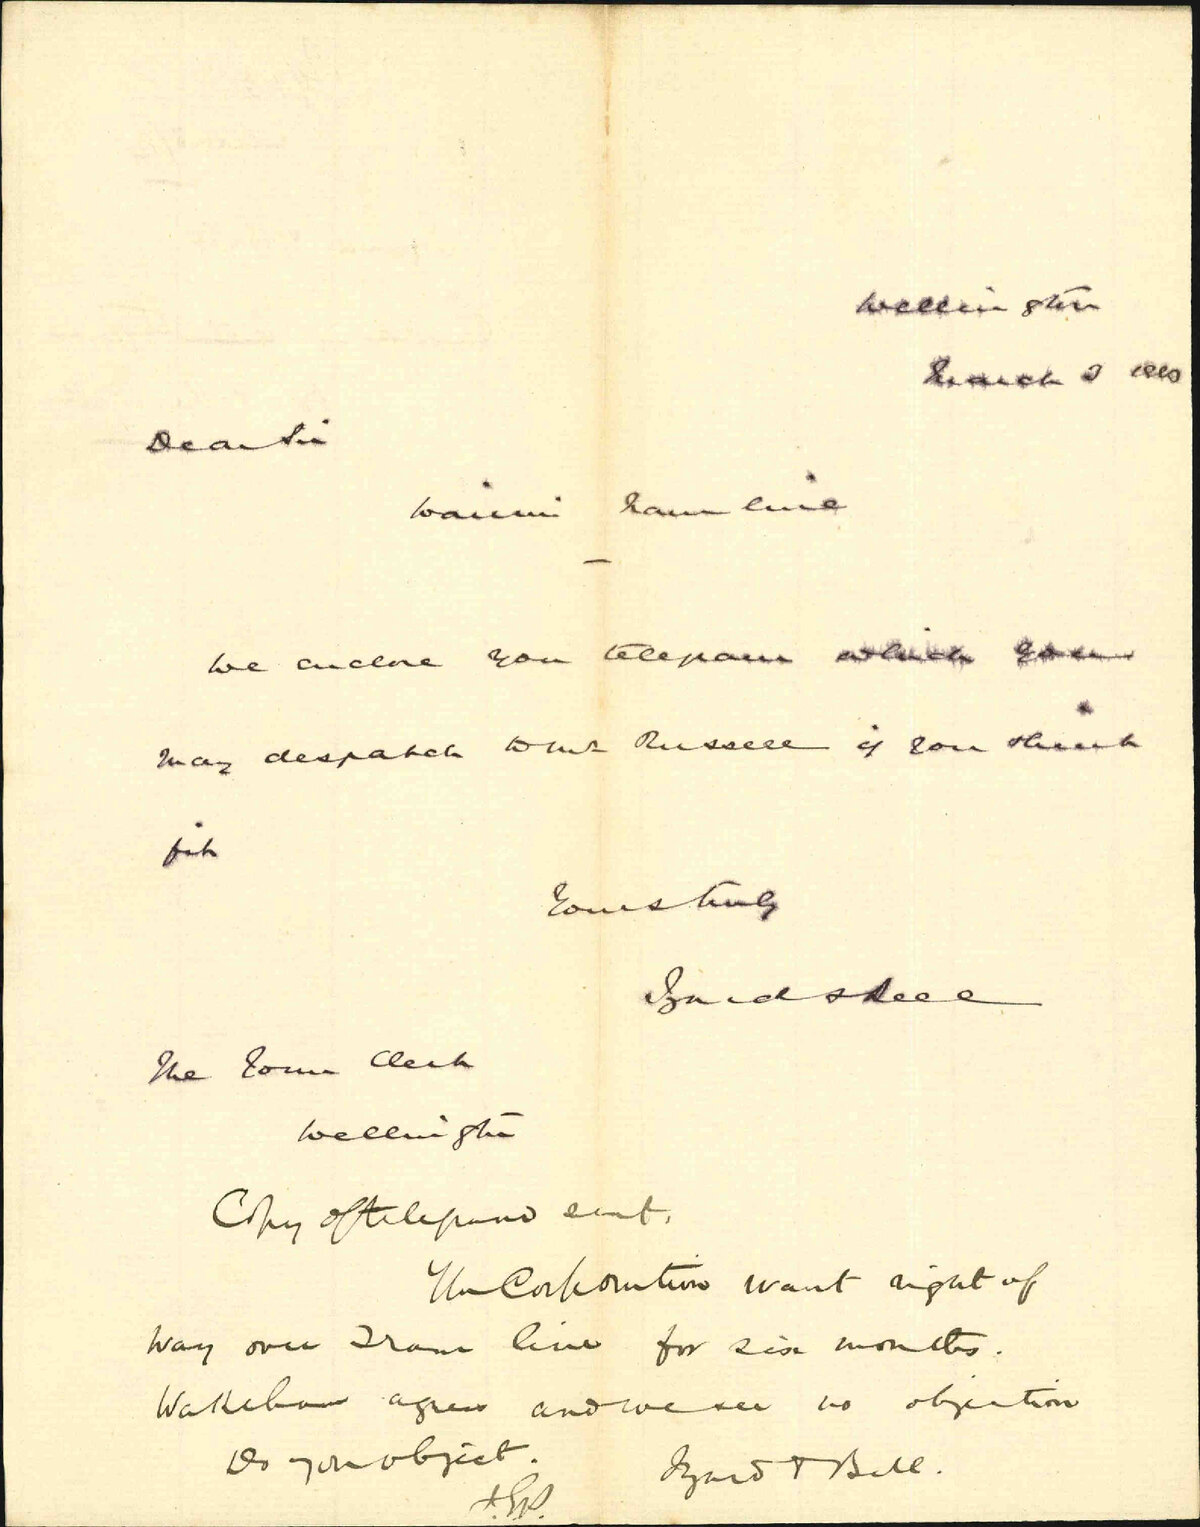 Wellington
March 3 1880
Dear Sir
Wainui Tram line
We enclose you telegram which you
may despatch to Mr Russell if you think
fit
Yours truly
Izard & Bell
The Town Clerk
Wellington
Copy of telegram sent.
The Corporation want right of
way over Tram line for six months.
Wakeham agrees and we see no objection
Do you object.
Izard & Bell.